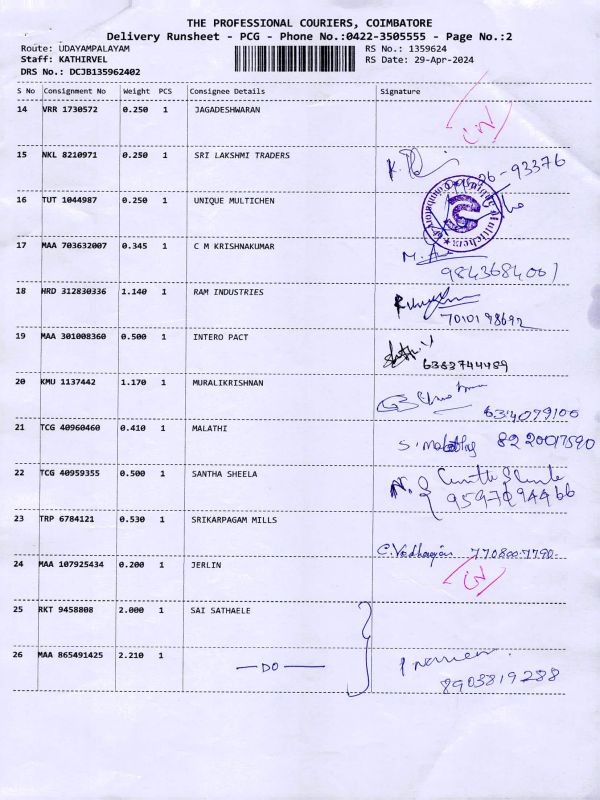 THE PROFESSIONAL COURIERS, COIMBATORE
Delivery Runsheet - PCG - Phone No.:0422-3505555 - Page No.:2
Route: UDAYAMPALAYAM RS No.: 1359624
Staff: KATHIRVEL RS Date: 29-Apr-2024
DRS No.: DCJB135962402
S No Consignment No Weight PCS Consignee Details Signature
14 VRR 1730572 0.250 1 JAGADESHWARAN
15 NKL 8210971 0.250 1 SRI LAKSHMI TRADERS
16 TUT 1044987 0.250 1 UNIQUE MULTICHEN
17 MAA 703632007 0.345 1 C M KRISHNAKUMAR
9843684001
18 HRD 312830336 1.140 1 RAM INDUSTRIES
7010198692
19 MAA 301008360 0.500 1 INTERO PACT
6383744489
20 KMU 1137442 1.170 1 MURALIKRISHNAN
21 TCG 40960460 0.410 1 MALATHI S. Malathy 8220017590
22 TCG 40959355 0.500 1 SANTHA SHEELA
23 TRP 6784121 0.530 1 SRIKARPAGAM MILLS
24 MAA 107925434 0.200 1 JERLIN
25 RKT 9458808 2.000 1 SAI SATHAELE
26 MAA 865491425 2.210 1 — DO —
8903819288